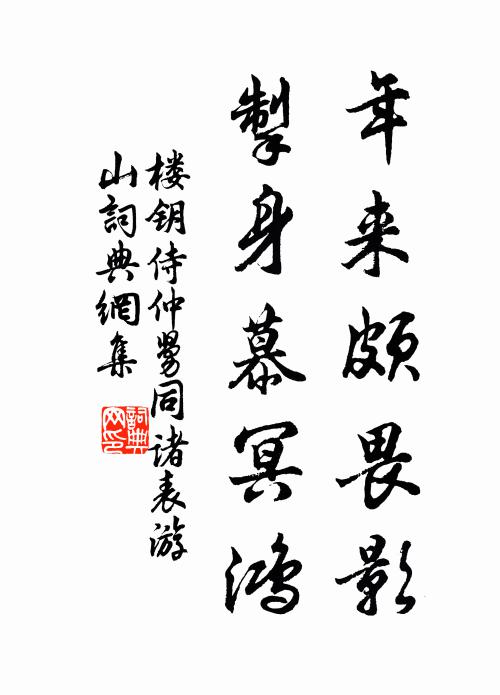 年来颇畏影
掣身慕冥鸿
楼钥侍仲舅同诸表游
山詞典網集
詞典
网印